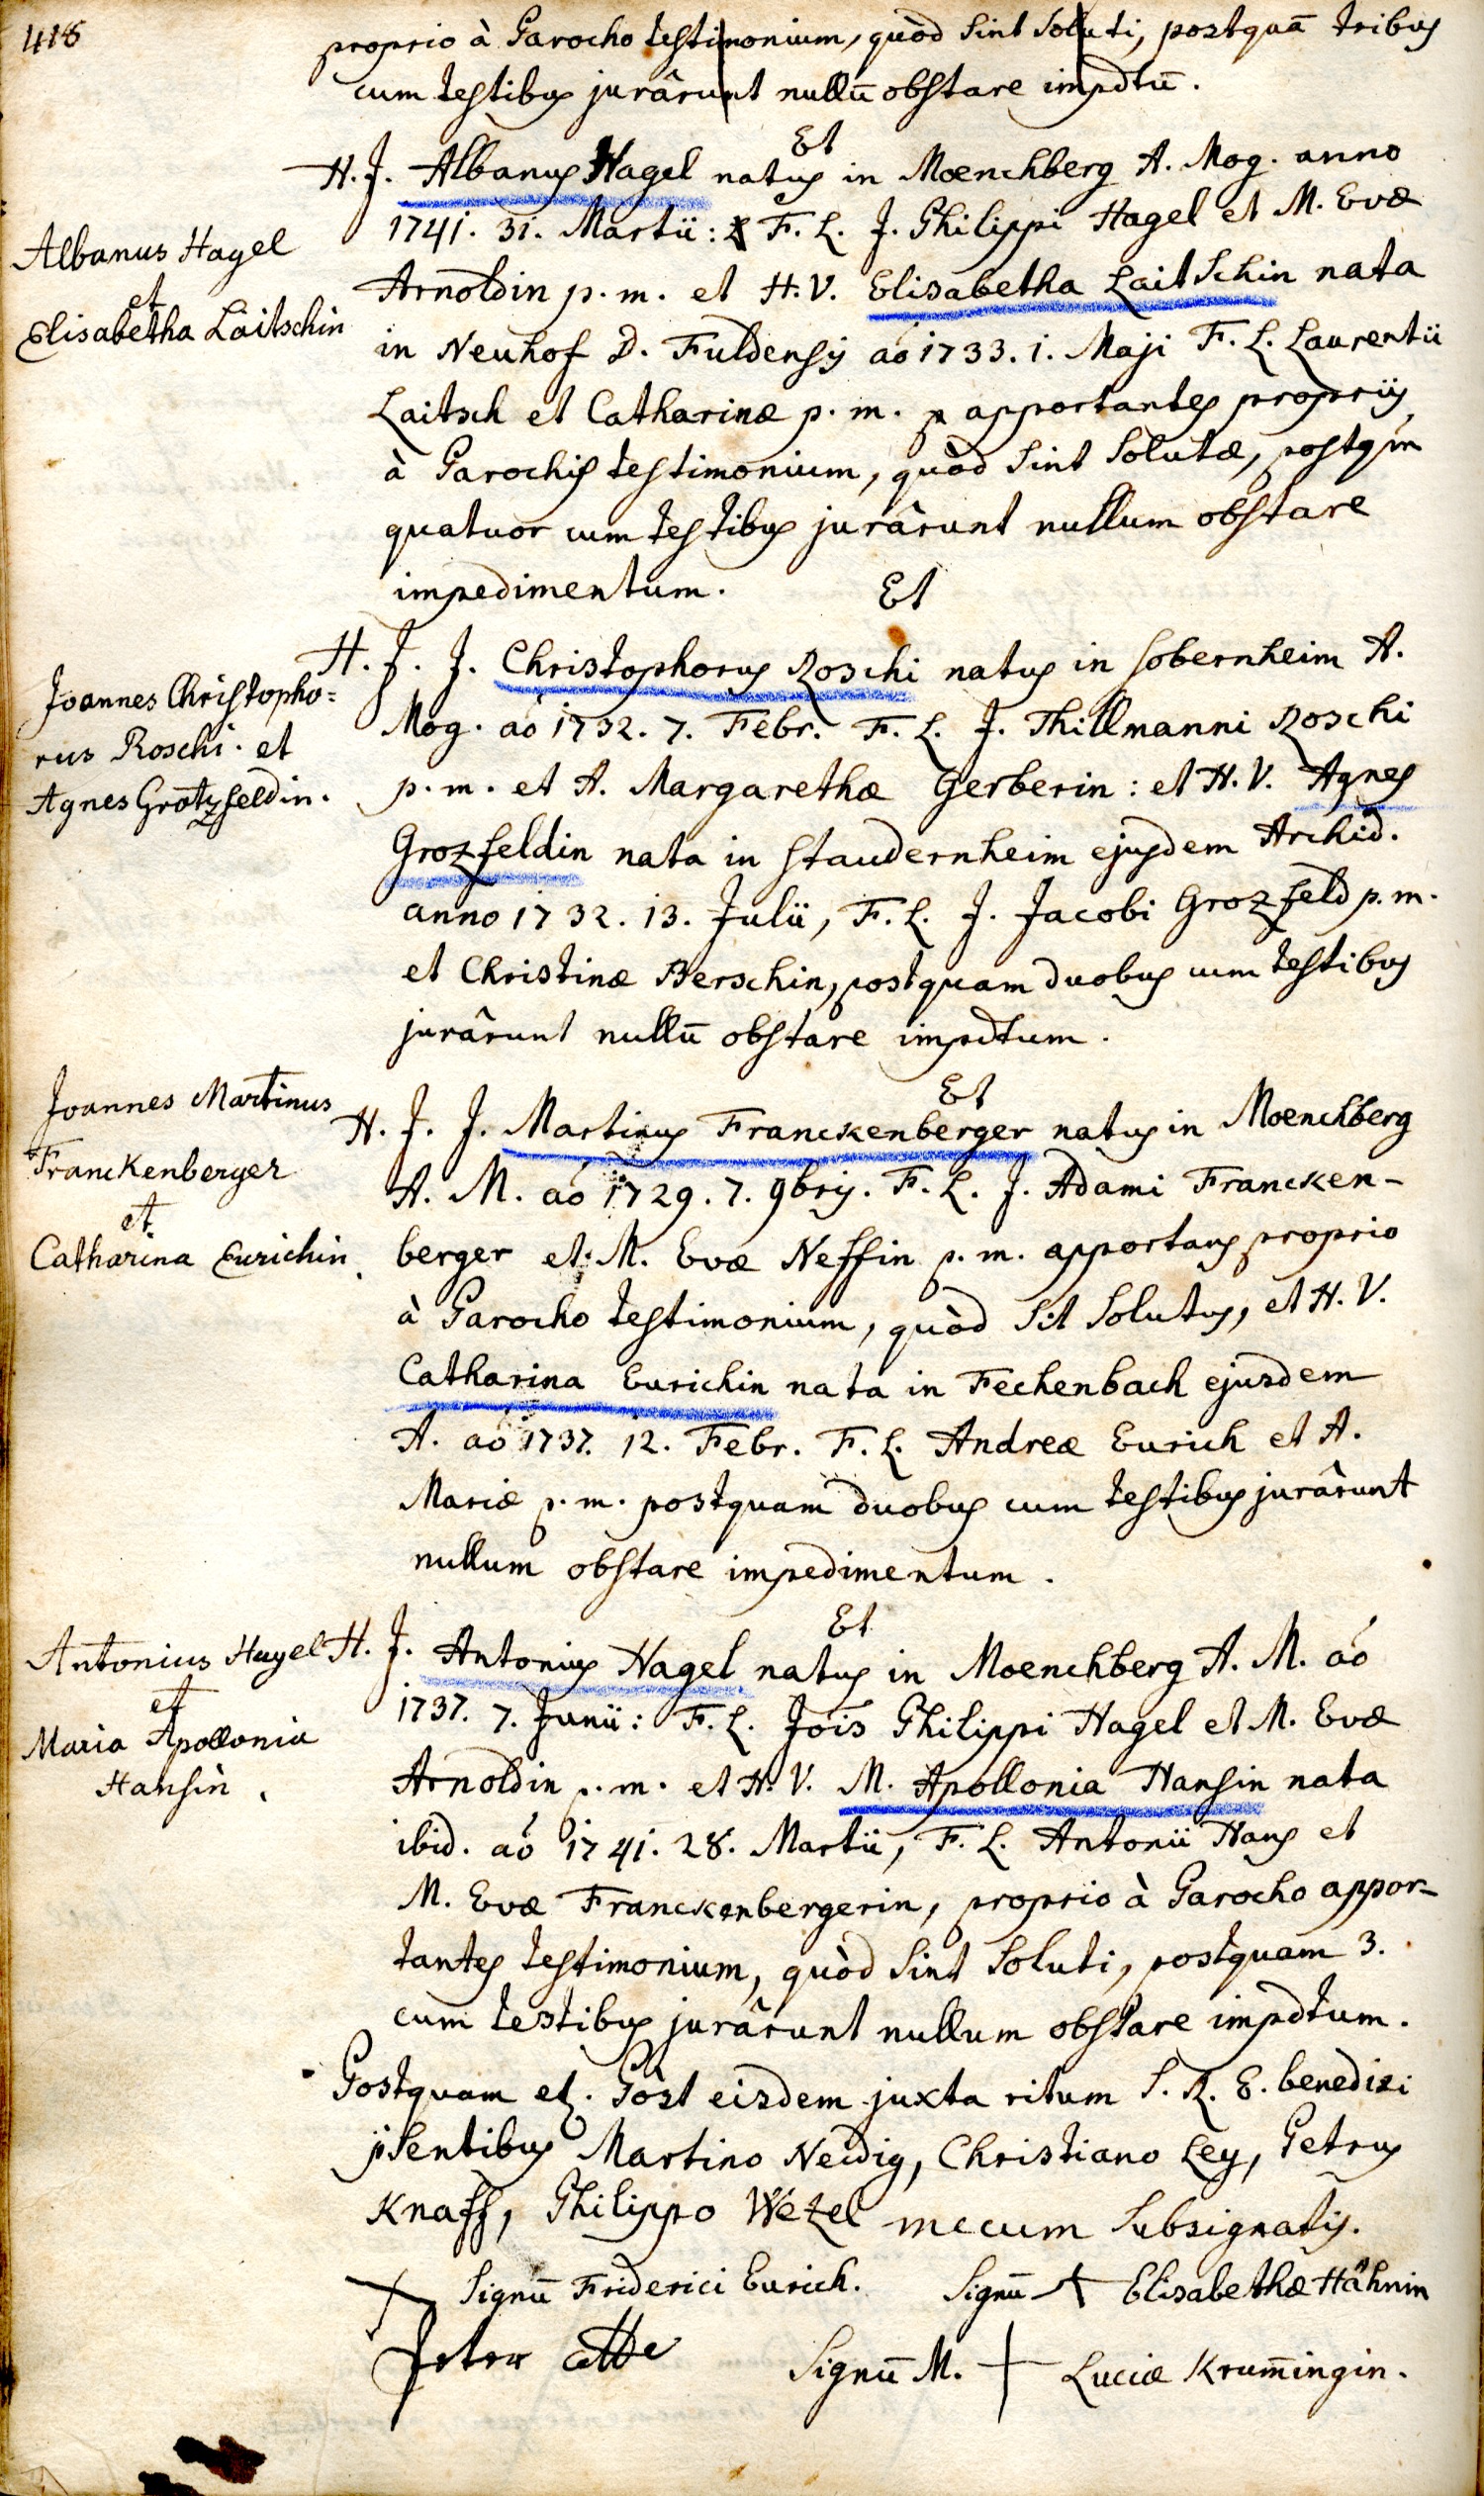 418
proprio à Parocho testimonium, quòd sint soluti, postquā tribus
cum testibus jurârunt nullū obstare impdtū.
Et
H. J. Albanus Hagel natus in Moenchberg A. Mog. anno
1741. 31. Martii: F. L. J. Philippi Hagel et M. Evæ
Albanus Hagel
et
Elisabetha Laitschin
Arnoldin p. m. et H. V. Elisabetha Laitschin nata
in Neuhof D. Fuldensis aó 1733. 1. Maji F. L. Laurentii
Laitsch et Catharinæ p. m. apportantes propriis
à Parochis testimonium, quòd sint solutæ, postqm
quatuor cum testibus jurârunt nullum obstare
impedimentum.
Et
H. J. J. Christophorus Roschi natus in Sobernheim A.
Joannes Christopho=
rus Roschi. et
Agnes Grotzfeldin.
Mog. aó 1732. 7. Febr. F. L. J. Thillmanni Roschi
p. m. et A. Margarethæ Gerberin: et H. V. Agnes
Grozfeldin nata in Staudernheim ejusdem Archid.
anno 1732. 13. Julii, F. L. J. Jacobi Grozfeld p. m.
et Christinæ Berschin, postquam duobus cum testibus
jurârunt nullū obstare impdtum.
Et
Joannes Martinus
Franckenberger
et
Catharina Eurichin
H. J. J. Martinus Franckenberger natus in Moenchberg
A. M. aó 1729. 7. 9bris. F. L. J. Adami Francken-
berger et M. Evæ Neffin p. m. apportans proprio
à Parocho testimonium, quòd sit solutus, et H. V.
Catharina Eurichin nata in Fechenbach ejusdem
A. aó 1737. 12. Febr. F. L. Andreæ Eurich et A.
Mariæ p. m. postquam duobus cum testibus jurârunt
nullum obstare impedimentum.
Et
Antonius Hagel
et
Maria Apollonia
Hansin.
H. J. Antonius Hagel natus in Moenchberg A. M. aó
1737. 7. Junii: F. L. Jois Philippi Hagel et M. Evæ
Arnoldin p. m. et H. V. M. Apollonia Hansin nata
ibid. aó 1741. 28. Martii, F. L. Antonii Hans et
M. Evæ Franckenbergerin, proprio à Parocho appor-
tantes testimonium, quòd sint soluti, postquam 3.
cum testibus jurârunt nullum obstare impdtum.
Postquam et. Pòst eisdem juxta ritum S. R. E. benedixi
psentibus Martino Neidig, Christiano Ley, Petrus
Knaff, Philippo Wezel mecum subsignatis.
Signū Friderici Eurich. Signū Elisabethæ Hähnin
Peter
Signū M. + Luciæ Krum̄ingin.